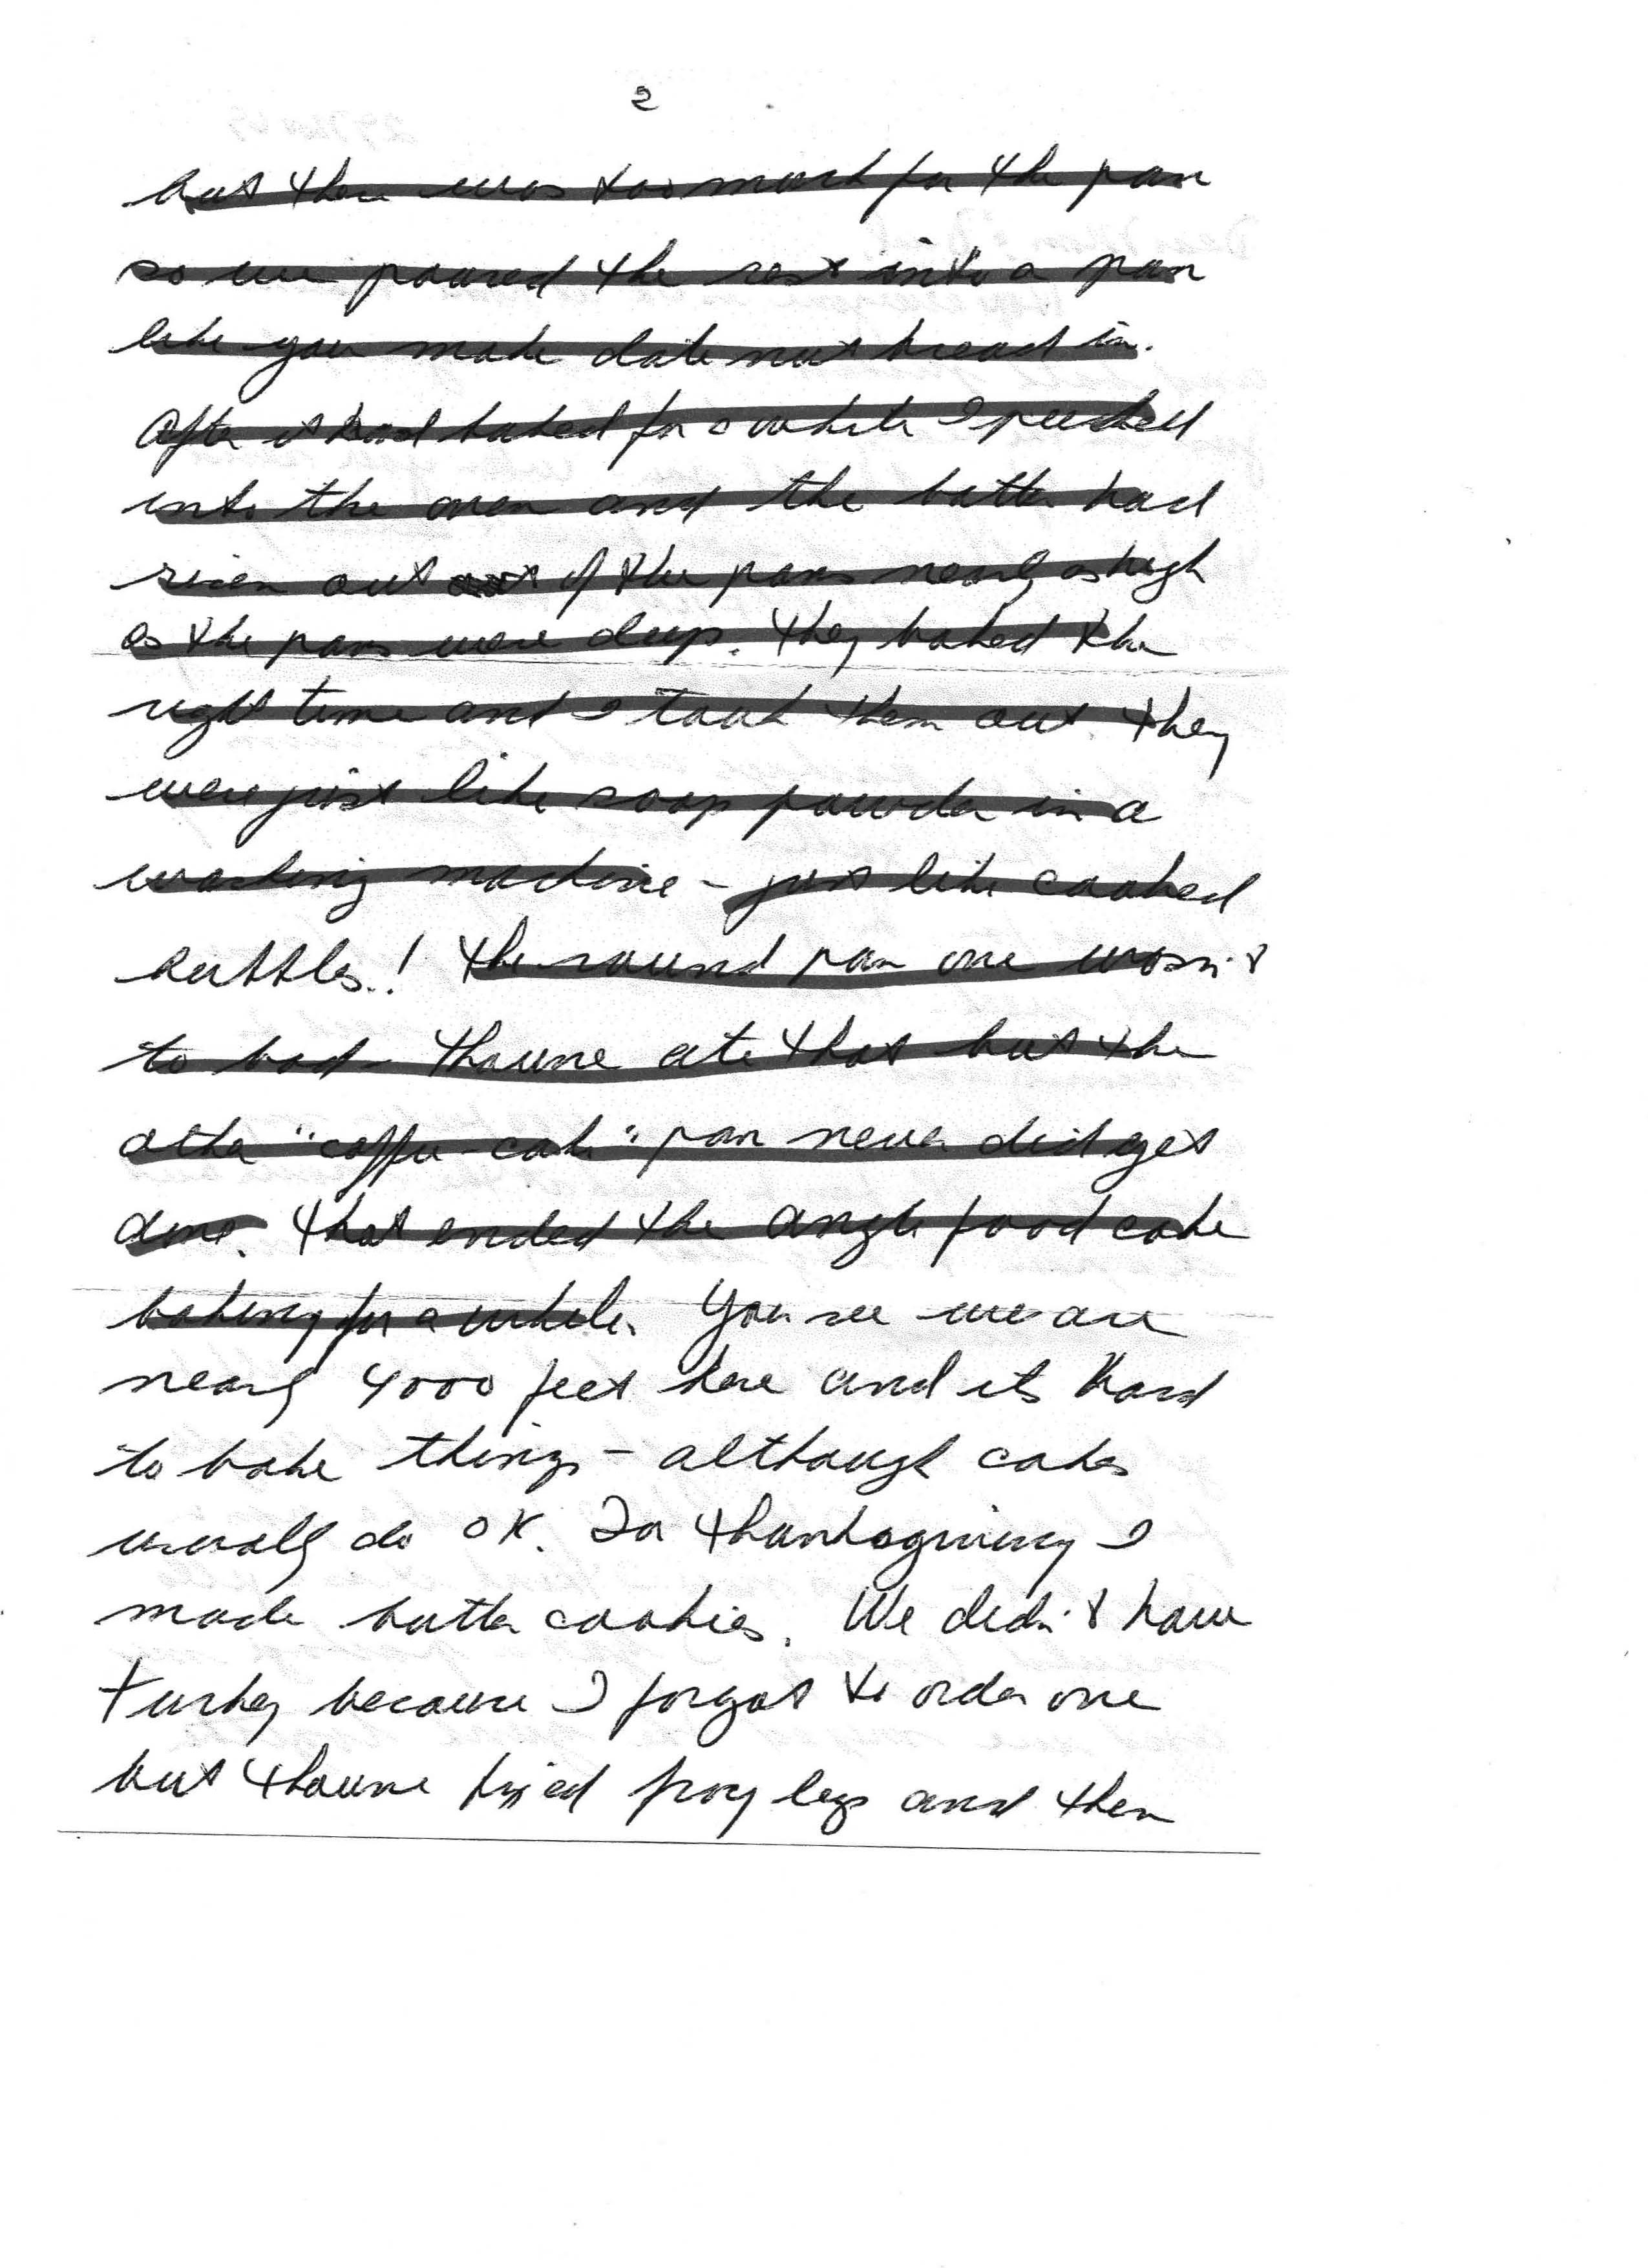 2
but there was too much for the pan
so we poured the rest into a pan
like you make date nut bread in.
After it had baked for a while I peeked
into the oven and the batter had
risen out out of the pans nearly as high
as the pans were deep. They baked the
right time and I took them out. They
were just like soap powder in a
washing machine - just like cooked
bubbles.! The round pan one wasn't
to bad - Thaune ate that but the
other "coffee-cake" pan never did get
done. That ended the angle food cake
baking for a while. You see we are
nearly 4000 feet here and its hard
to bake things - although cakes
usually do OK. For Thanksgiving I
made butter cookies. We didn't have
turkey because I forgot to order one
but Thaune fried frog legs and then